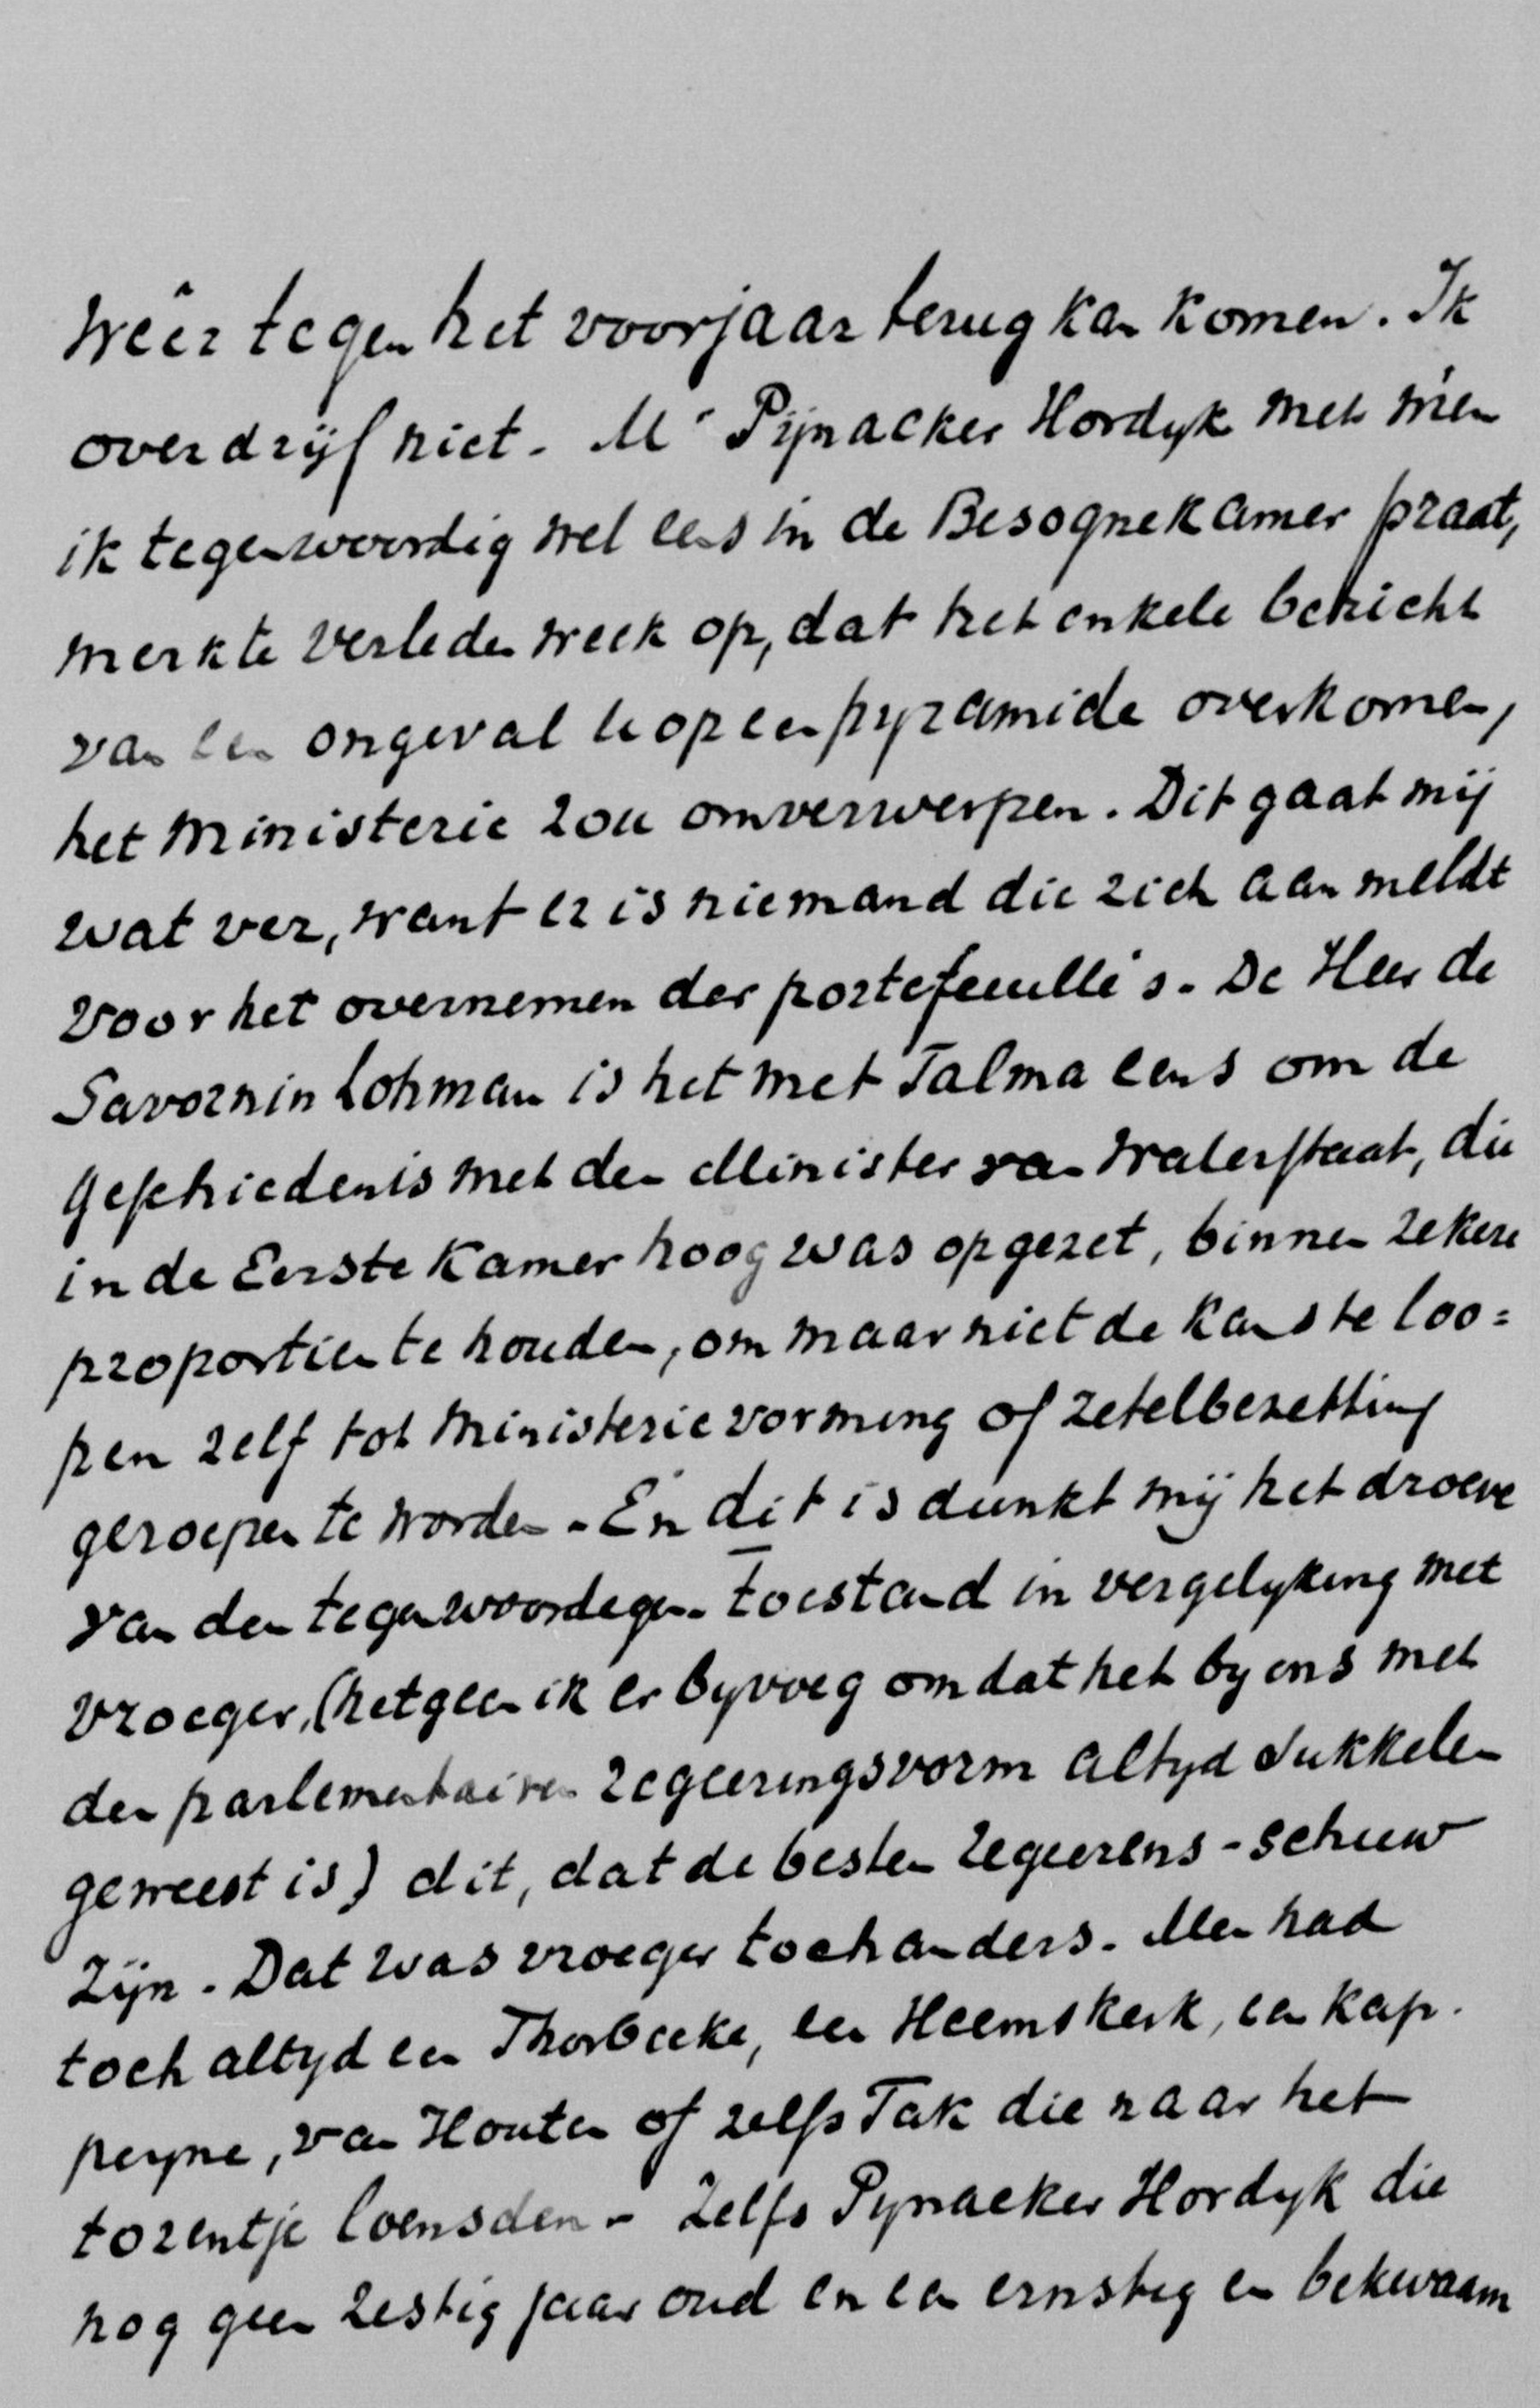 weêr tegen het voorjaar terug kan komen. Ik
overdrijf niet. Mr Pijnacker Hordyk met wien
ik tegenwoordig wel eens in de Besognekamer praat,
merkte verleden week op, dat het enkele bericht
van een ongeval u op een pyramide overkomen,
het Ministerie zou omverwerpen. Dit gaat mij
wat ver, want er is niemand die zich aanmeldt
voor het overnemen der portefeuille's. De Heer de
Savornin Lohman is het met Talma eens om de
geschiedenis met den Minister van Waterstaat, die
in de Eerste Kamer hoog was opgezet, binnen zekere
proportien te houden, om maar niet de kans te loo=
pen zelf tot Ministerievorming of zetelbezetting
geroepen te worden. En dit is dunkt mij het droeve
van den tegenwoordigen toestand in vergelyking met
vroeger, (hetgeen ik er byvoeg omdat het by ons met
den parlementairen regeeringsvorm altyd sukkelen
geweest is) dit, dat de besten regeerens-schuw
zijn. Dat was vroeger toch anders. Men had
toch altyd een Thorbecke, een Heemskerk, een Kap.
peyne, van Houten of zelfs Tak die naar het
torentje loensden. Zelfs Pynacker Hordyk die
nog geen zestig jaar oud en een ernstig en bekwaam